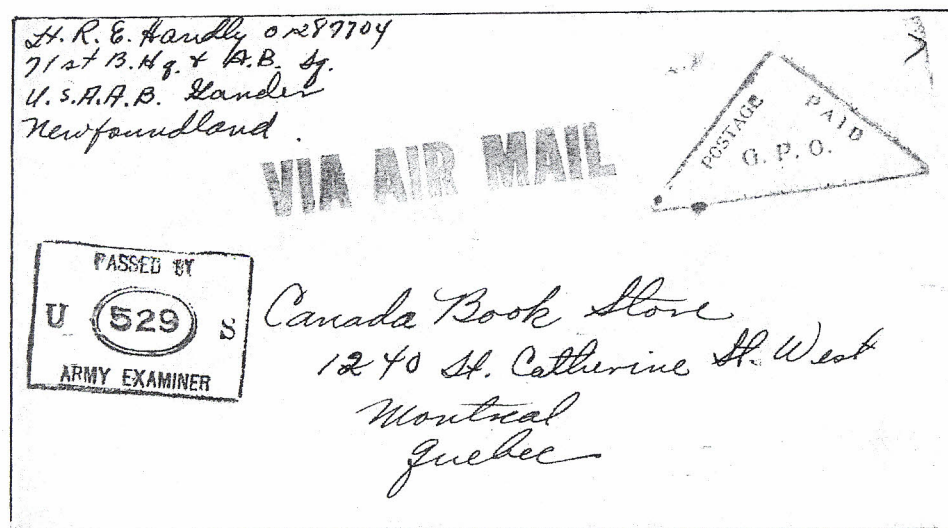 Lt. R. E. Handly O287704
71st B. Hq. & A.B. Sq.
U.S.A.A.B. Gander
Newfoundland.
VIA AIR MAIL
POSTAGE PAID
G. P. O.
PASSED BY
U 529 S
ARMY EXAMINER
Canada Book Store
1240 St. Catherine St. West
Montreal
Quebec